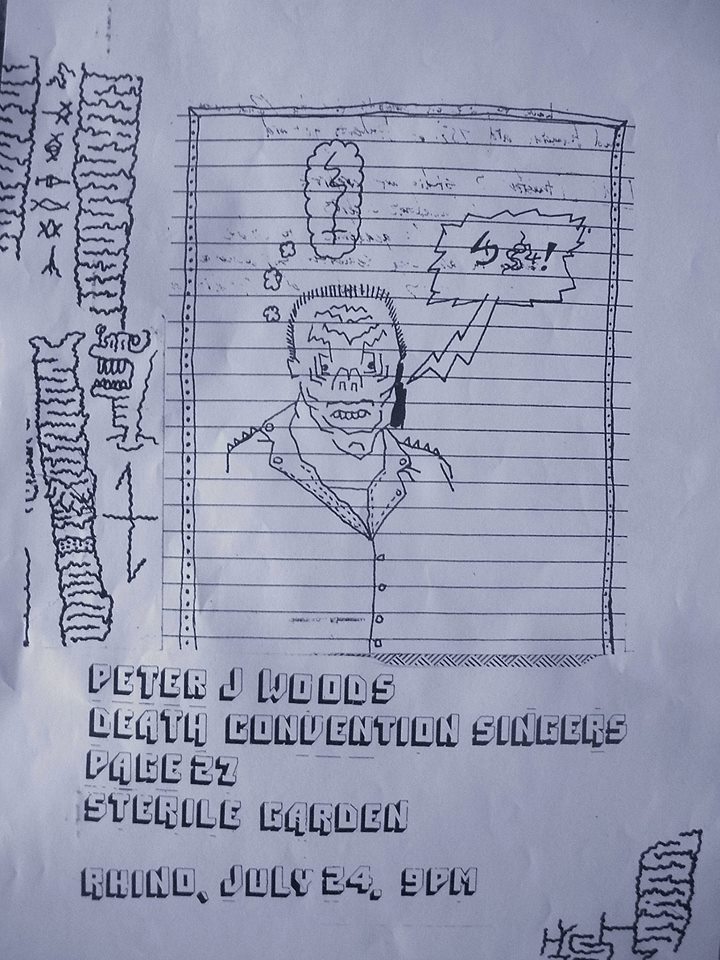 PETER J WOODS
DEATH CONVENTION SINGERS
PAGE 27
STERILE GARDEN
RHINO, JULY 24, 9PM